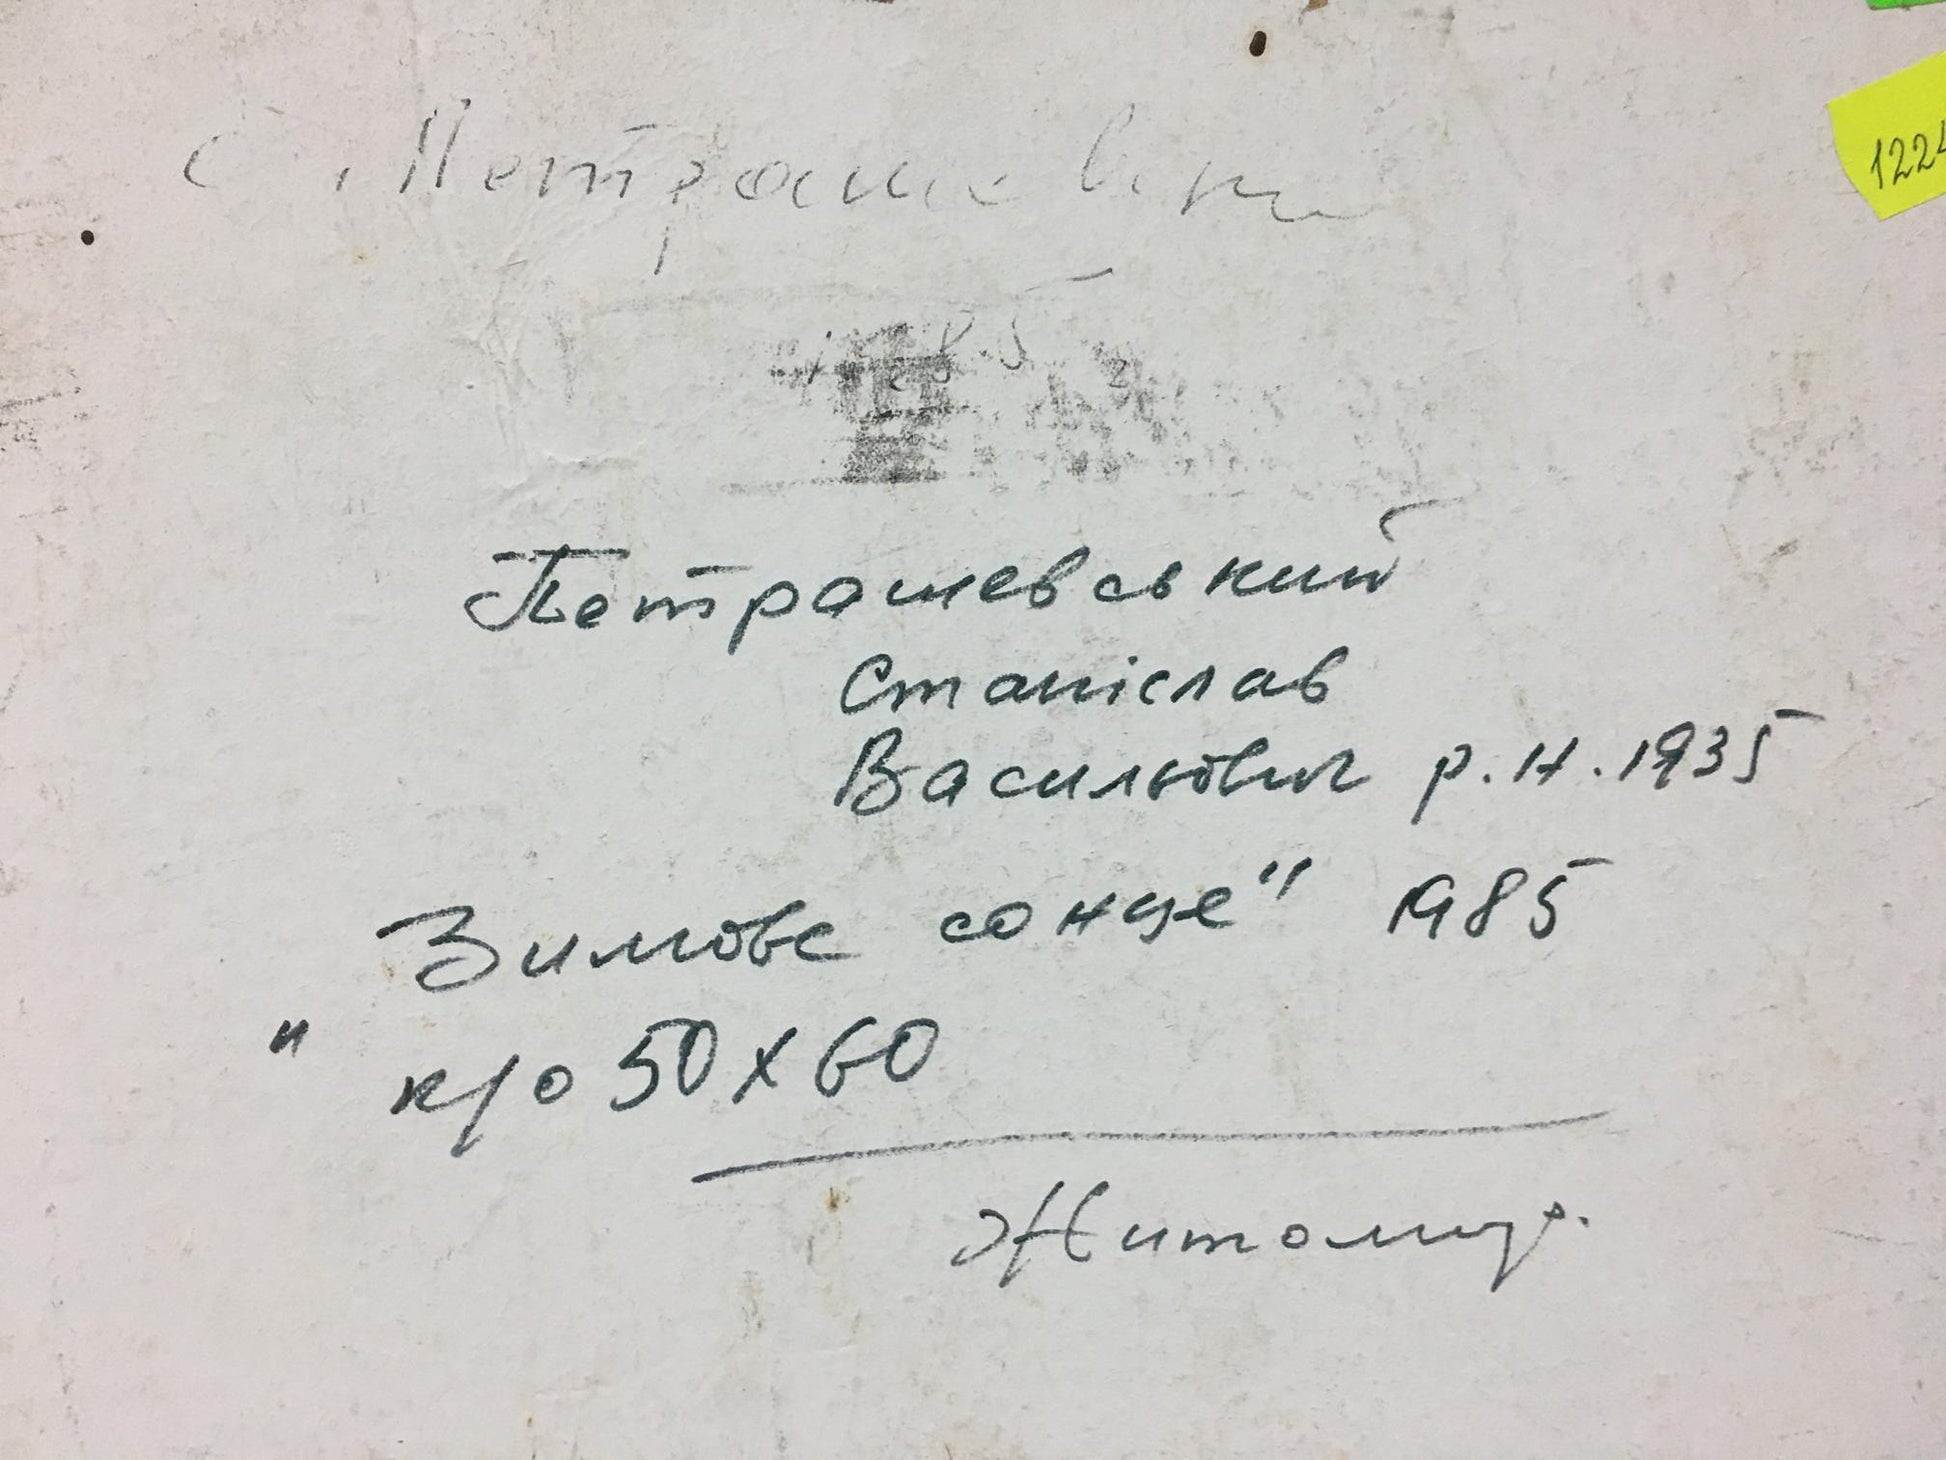 С. Петрашевски
1985 г
1224
Петрашевський
Станіслав
Васильович р.н. 1935
Зимове сонце" 1985
" к/о 50х60
Житомир.